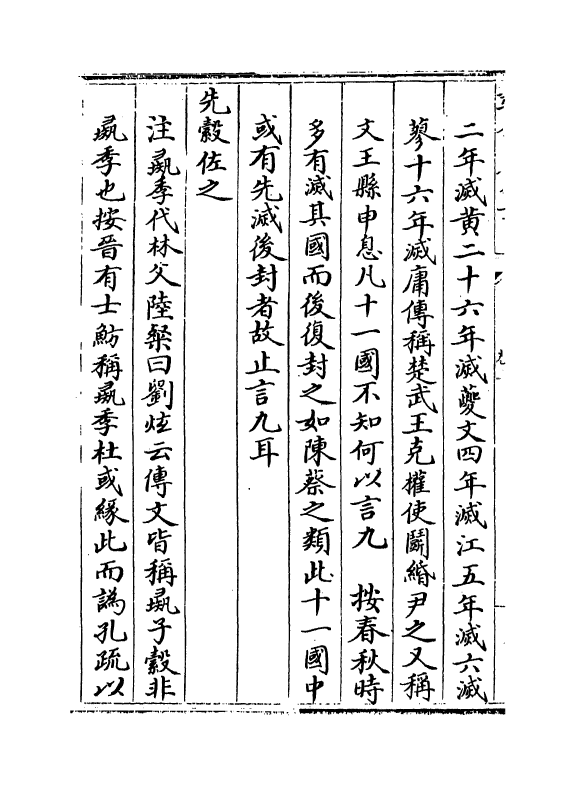 二年滅黄二十六年滅夔文四年滅江五年滅六滅
蓼十六年滅庸傳稱楚武王克權使鬬緡尹之又稱
文王縣申息凡十一國不知何以言九　按春秋時
多有滅其國而後復封之如陳蔡之類此十一國中
或有先滅後封者故止言九耳
先縠佐之
注彘季代林父陸粲曰劉炫云傳文皆稱彘子縠非
彘季也按晉有士魴稱彘季杜或緣此而譌孔疏以